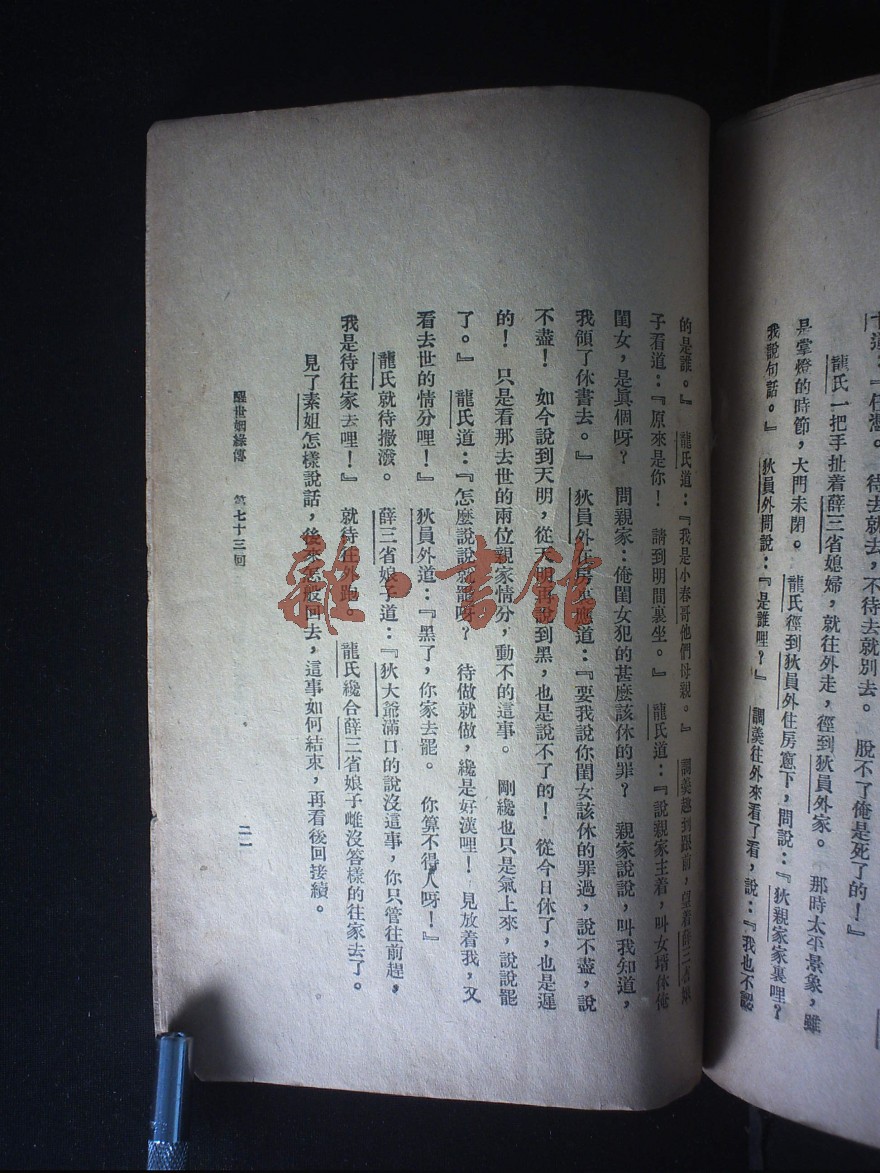 十道：『任憑。　待去就去，不待去就別去。　脫不了俺是死了的！』
龍氏一把手扯着薛三省媳婦，就往外走，徑到狄員外家。　那時太平景象，雖
是掌燈的時節，大門未閉。　龍氏徑到狄員外住房窻下，問說：『狄親家家裏哩？
我說句話。』　狄員外問說：『是誰哩？』　調羹往外來看了看，說：『我也不認
的是誰。』　龍氏道：『我是小春哥他們母親。』　調羹趨到跟前，望着薛三省娘
子看道：『原來是你！　請到明間裏坐。』　龍氏道：『說親家主着，叫女壻休俺
閨女，是眞個呀？　問親家：俺閨女犯的甚麽該休的罪？　親家說說，叫我知道，
我領了休書去。』　狄員外在房裏應道：『要我說你閨女該休的罪過，說不盡，說
不盡！　如今說到天明，從天明再說到黑，也是說不了的！　從今日休了，也是遲
的！　只是看那去世的兩位親家情分，動不的這事。　剛纔也只是氣上來，說說罷
了。』　龍氏道：『怎麽說說就罷呀？　待做就做，纔是好漢哩！　見放着我，又
看去世的情分哩！』　狄員外道：『黑了，你家去罷。　你算不得人呀！』
龍氏就待撒潑。　薛三省娘子道：『狄大爺滿口的說沒這事，你只管往前趕，
我是待往家去哩！』　就待往外跑。　龍氏纔合薛三省娘子雌沒答樣的往家去了。
見了素姐怎樣說話，後來怎般回去，這事如何結束，再看後回接續。
醒世姻緣傳　第七十三回
二一
雜·書館